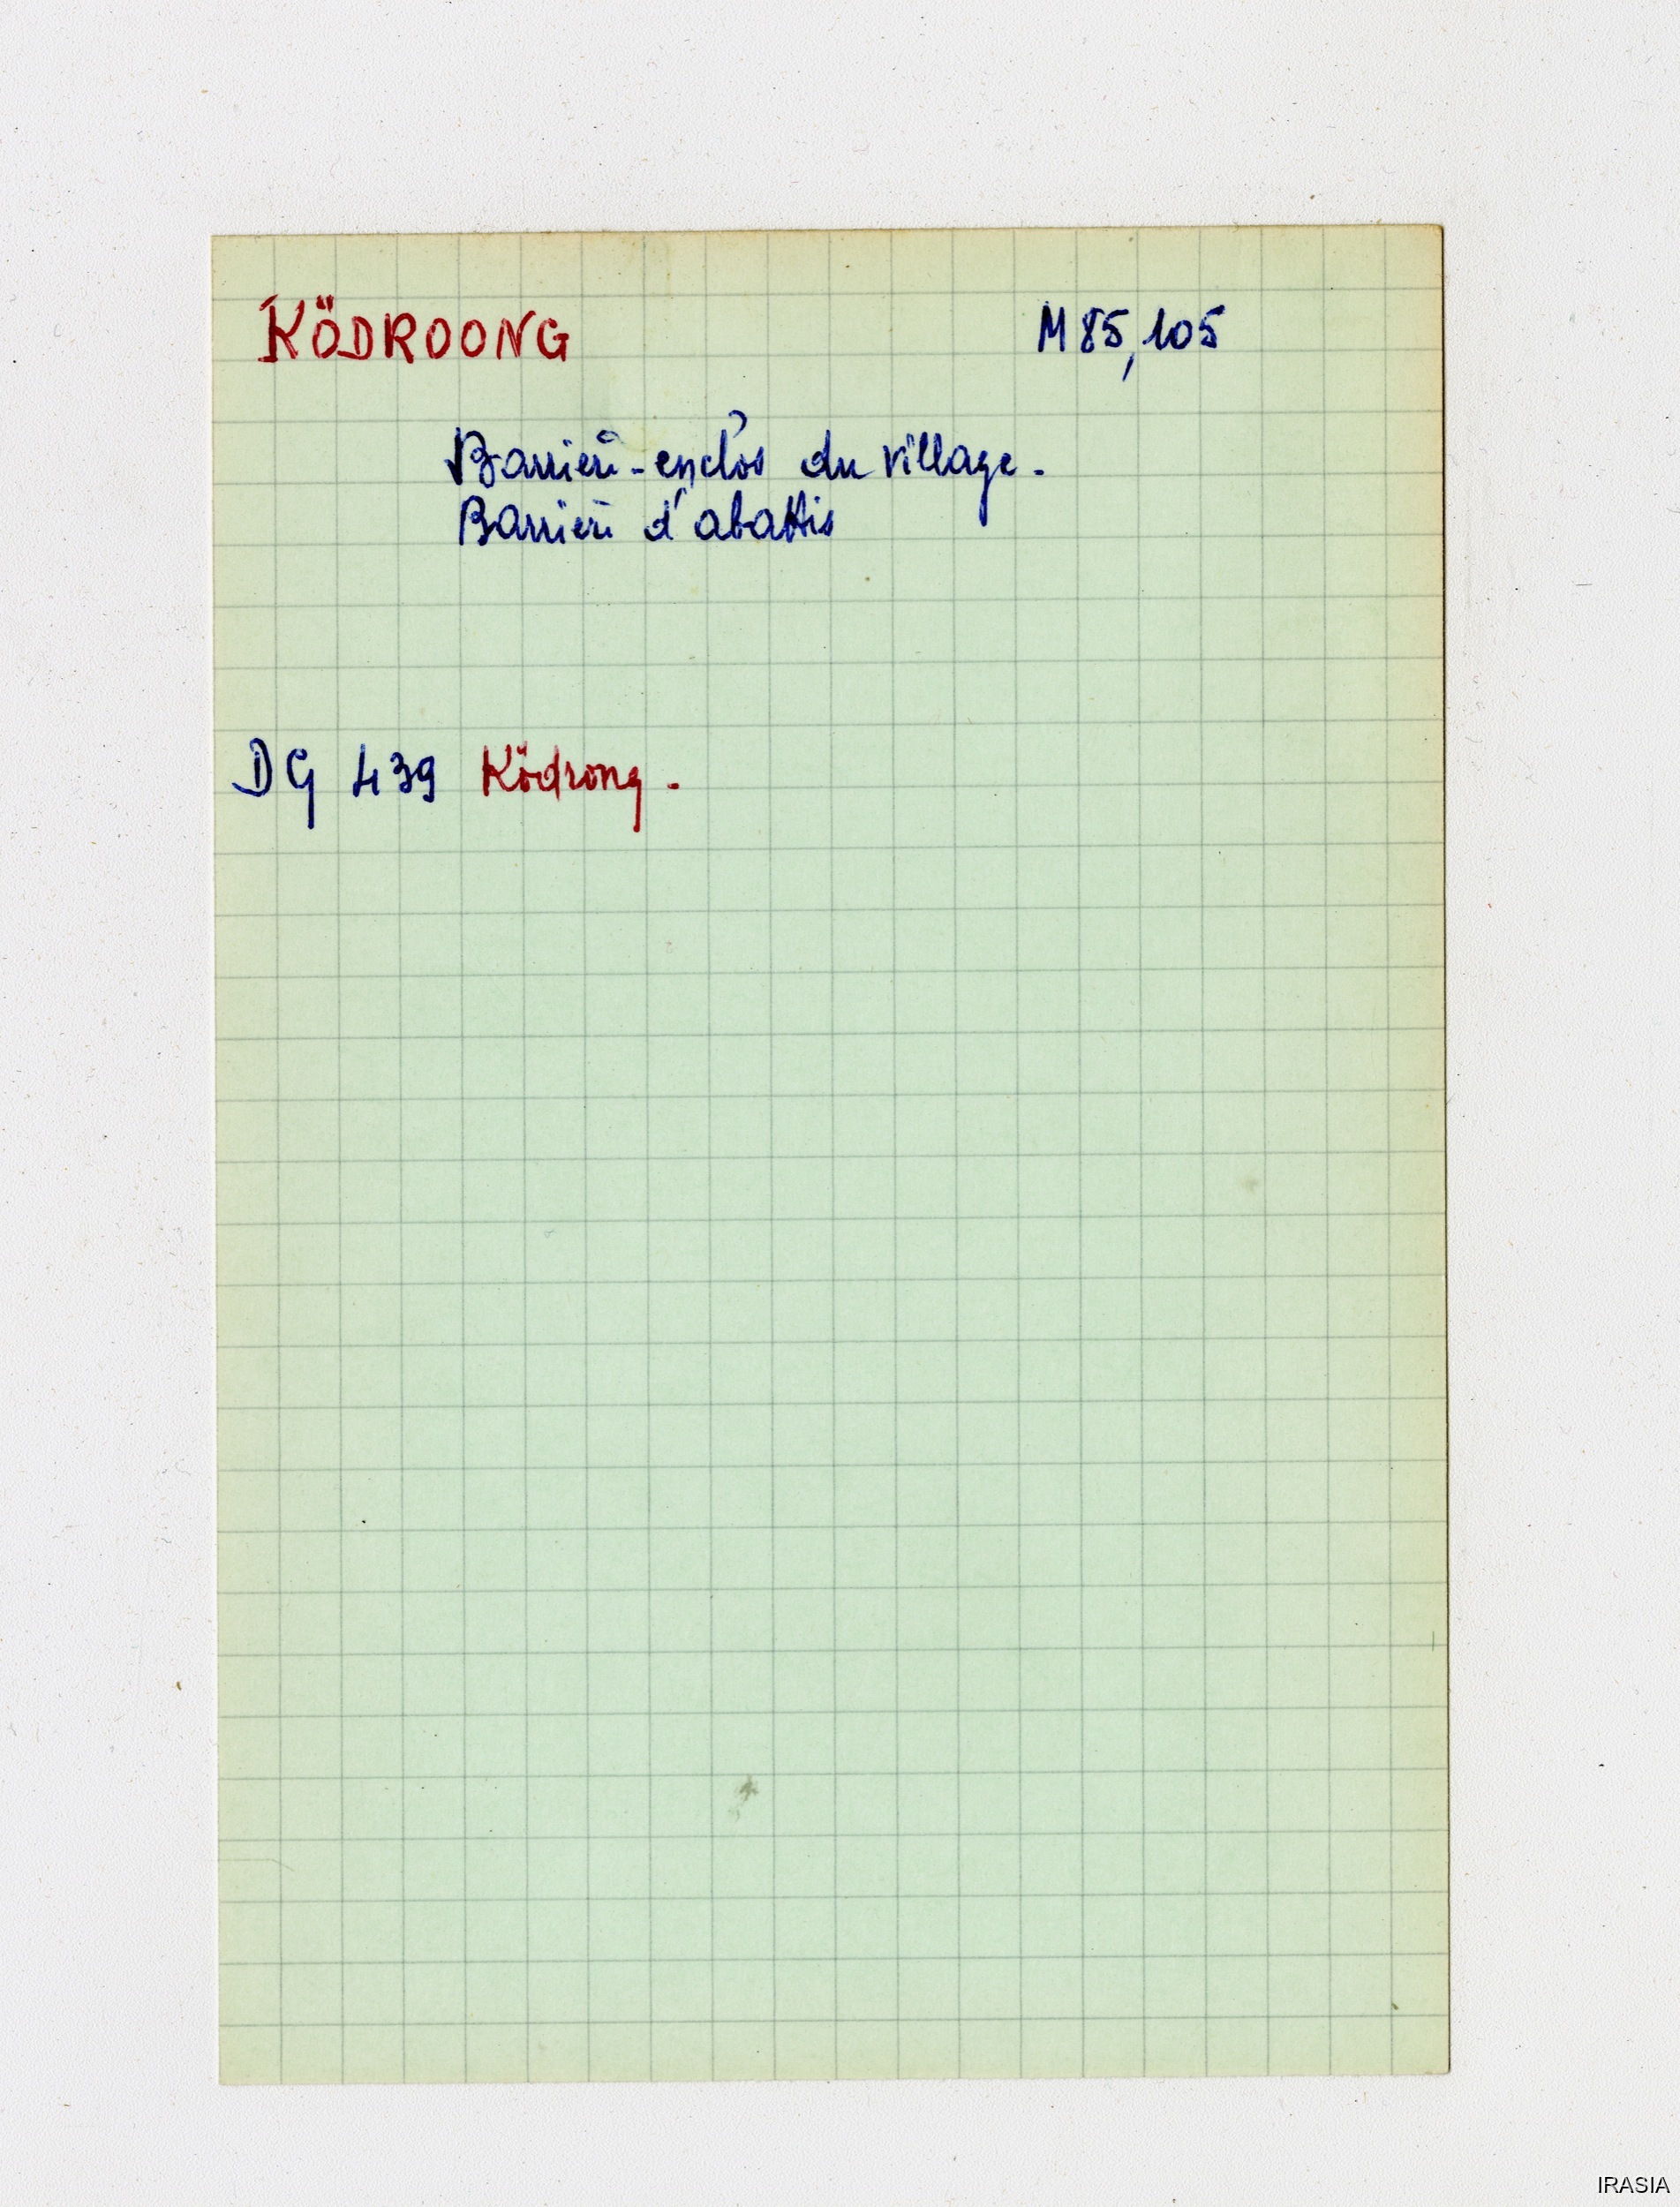 KÖDROONG M 85, 105
Barrière-enclos du village.
Barrière d'abattis
DG 439 Ködrong.
IRASIA